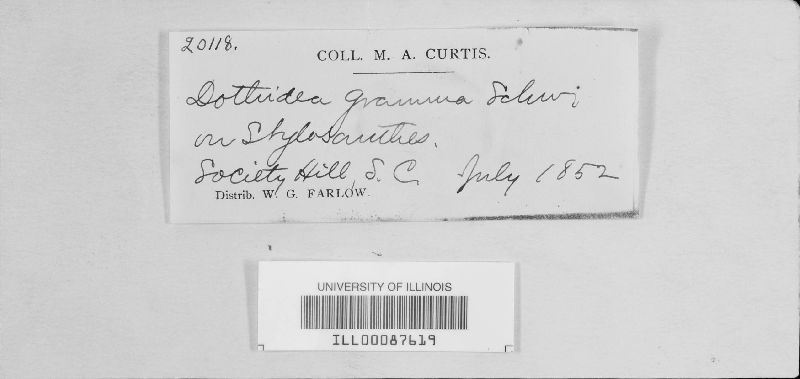 20118.
COLL. M. A. CURTIS.
Dothidea gramma Schwi
on Stylosanthes.
Society Hill, S. C. July 1852
Distrib. W. G. FARLOW.
UNIVERSITY OF ILLINOIS
ILL00087619